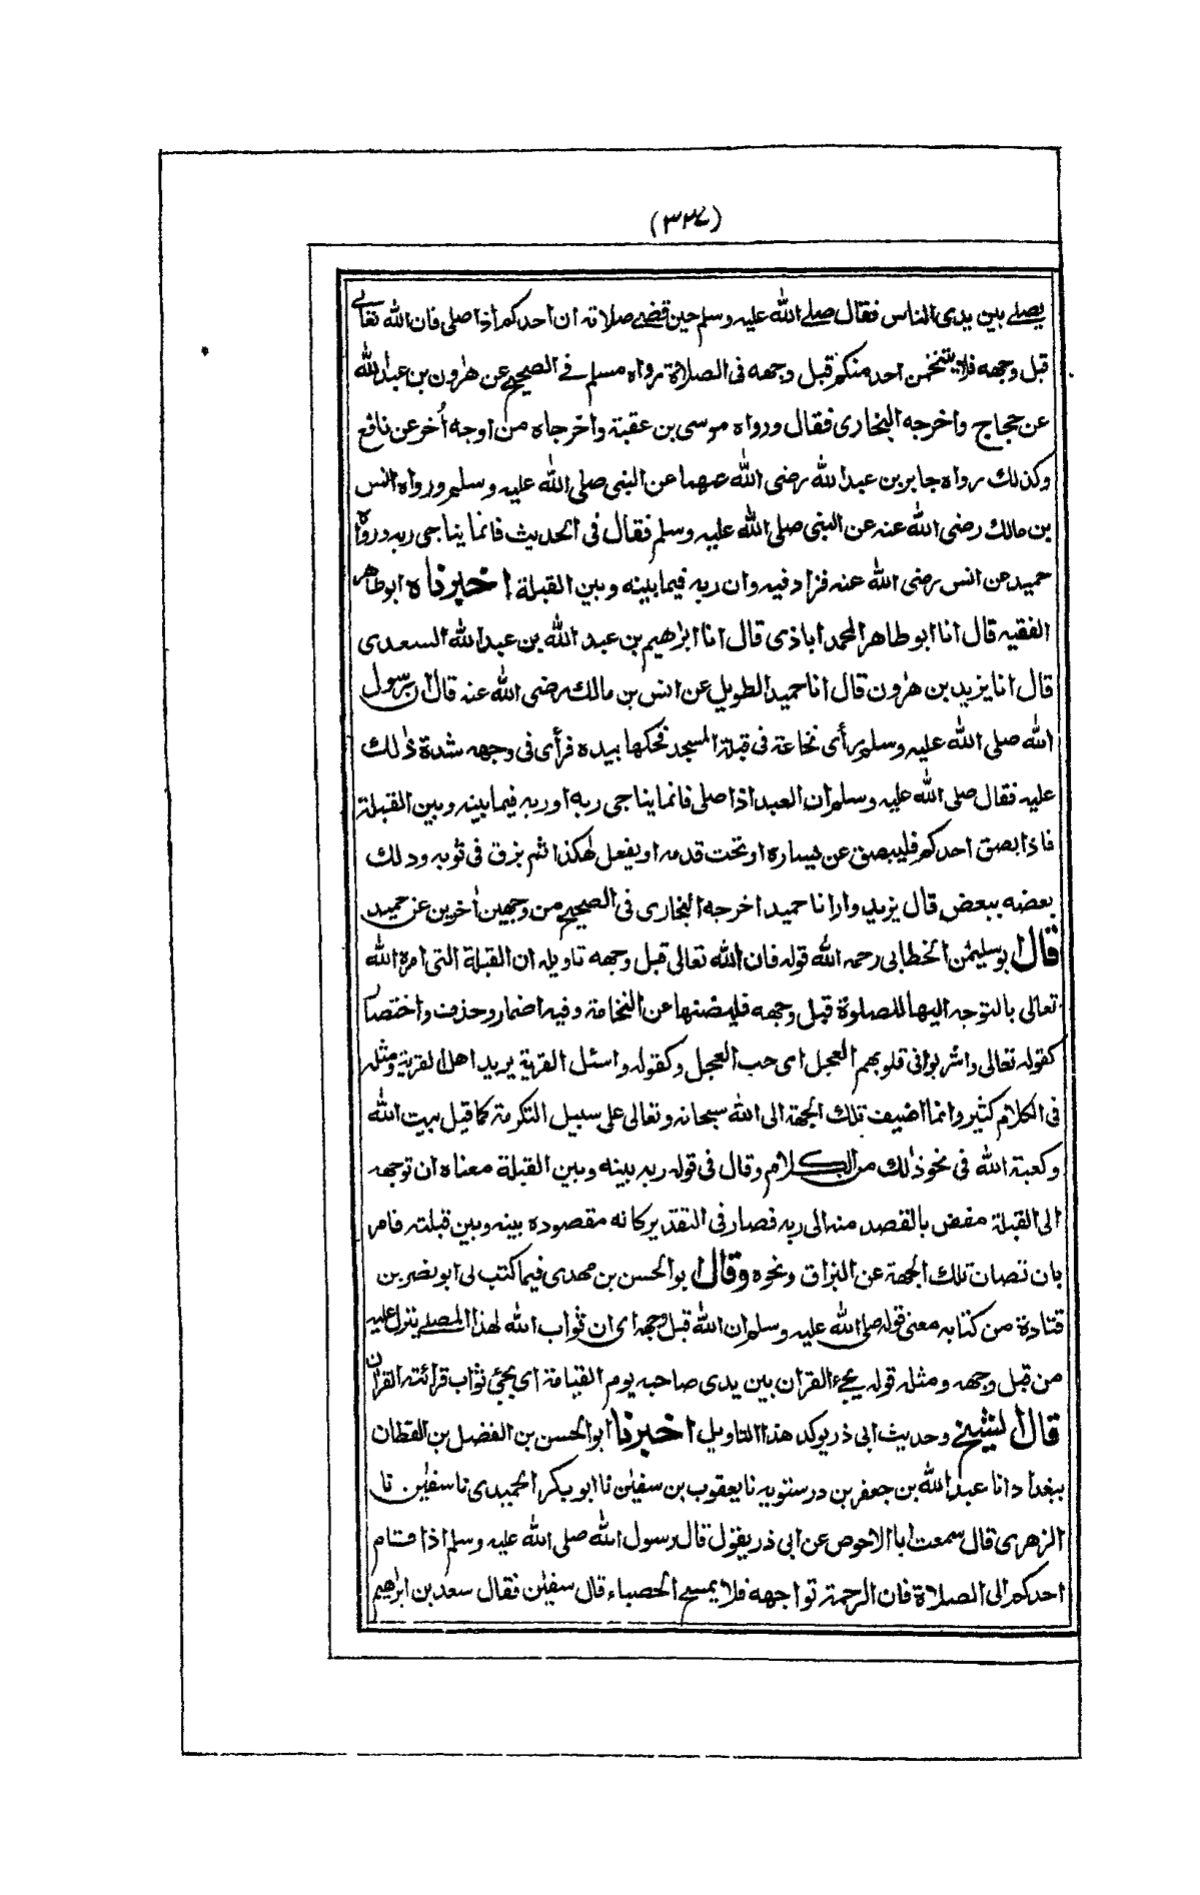 (٣٢٧)
يصلے بين يدى الناس فقال صلے الله عليه وسلم حين قضے صلاته ان احدكم اذا صلى فان الله تعالے
قبل وجهه فلا يتنخمن احد منكم قبل وجهه فى الصلاة رواه مسلم فے الصحيح عن هٰرون بن عبد الله
عن حجاج واخرجه البخارى فقال ورواه موسى بن عقبة واخرجاه من اوجه أخر عن نافع
وكذلك رواه جابر بن عبد الله رضى الله عنهما عن النبى صلى الله عليه وسلم ورواه انس
بن مالك رضى الله عنه عن النبى صلى الله عليه وسلم فقال فى الحديث فانما يناجى ربه ورواه
حميد عن انس رضى الله عنه فزاد فيه وان ربه فيما بينه وبين القبلة اخبرناه ابو طاهر
الفقيه قال انا ابو طاهر المحمد اباذى قال انا ابرٰهيم بن عبد الله بن عبد الله السعدى
قال انا يزيد بن هٰرون قال انا حميد الطويل عن انس بن مالك رضى الله عنه قال ان رسول
الله صلى الله عليه وسلم رأى نخاعة فى قبلة المسجد فحكها بيده فرأى فى وجهه شدة ذٰلك
عليه فقال صلى الله عليه وسلم ان العبد اذا صلى فانما يناجى ربه او ربه فيما بينه وبين القبلة
فاذا بصق احدكم فليبصق عن يساره او تحت قدمه او يفعل هٰكذا ثم بزق فى ثوبه ودلك
بعضه ببعض قال يزيد وارانا حميد اخرجه البخارى فى الصحيح من وجهين اٰخرين عن حميد
قال ابو سليمٰن الخطابى رحمه الله قوله فان الله تعالى قبل وجهه تاويله ان القبلة التى امره الله
تعالى بالتوجه اليها للصلوة قبل وجهه فليصنها عن النخامة وفيه اضمار وحذف واختصار
كقوله تعالى واشربوا فى قلوبهم العجل اى حب العجل وكقوله واسئل القرية يريد اهل القرية ومثله
فى الكلام كثير وانما اضيف تلك الجهة الى الله سبحانه وتعالى على سبيل التكرمة كما قيل بيت الله
وكعبة الله فى نحو ذٰلك من الكلام وقال فى قوله ربه بينه وبين القبلة معناه ان توجهه
الى القبلة مفض بالقصد منه الى ربه فصار فى التقدير كانه مقصوده بينه وبين قبلته فامر
بان تصان تلك الجهة عن البزاق ونحوه وقال ابو الحسن بن مهدى فيما كتب لى ابو نصر بن
قتادة من كتابه معنى قوله صلى الله عليه وسلم ان الله قبل وجهه اى ان ثواب الله لهذا المصلے ينزل عليه
من قبل وجهه ومثله قوله يجئ القران بين يدى صاحبه يوم القيامة اى يجئ ثواب قرائته القران
قال الشيخ وحديث ابى ذر يوكد هذا التاويل اخبرنا ابو الحسن بن الفضل بن القطان
ببغداد انا عبد الله بن جعفر بن درستويه نا يعقوب بن سفيٰن نا ابو بكر الحميدى نا سفيٰن نا
الزهرى قال سمعت ابا الاحوص عن ابى ذر يقول قال رسول الله صلى الله عليه وسلم اذا قام
احدكم الى الصلاة فان الرحمة تواجهه فلا يمسح الحصباء قال سفيٰن فقال سعد بن ابرٰهيم